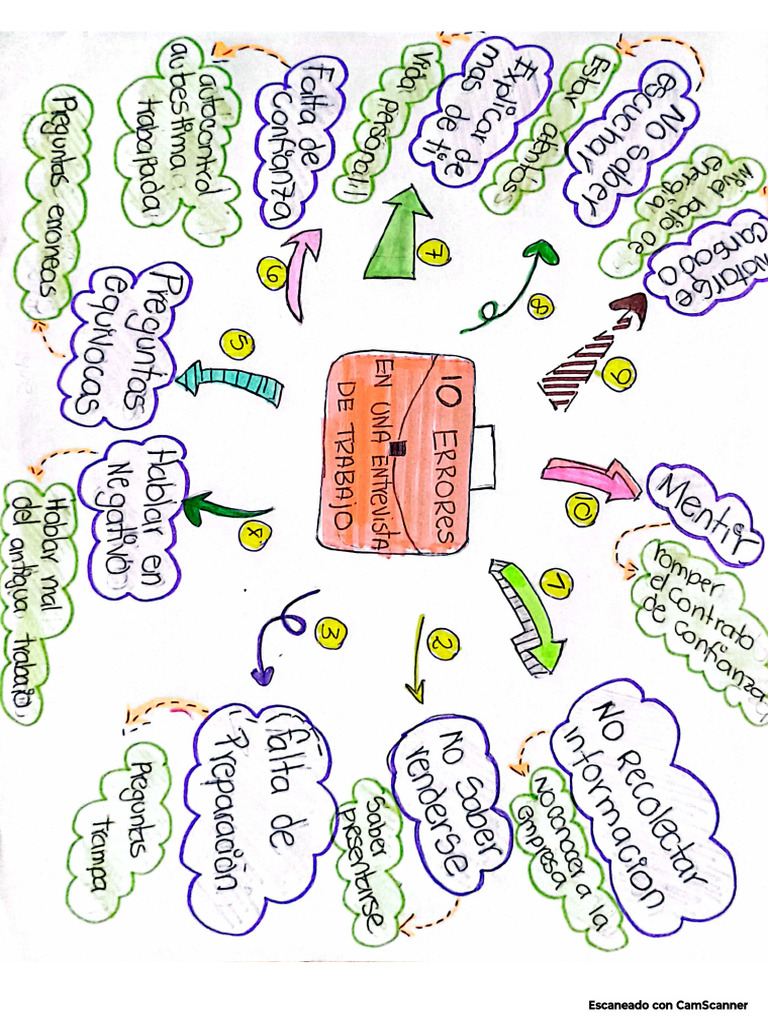 10 ERRORES
EN UNA ENTREVISTA
DE TRABAJO
1
NO RECOLECTAR
informacion
No conocer a la
empresa
2
No Saber
renderse
Saber
presentarse
3
falta de
Preparación
preguntas
trampa
Hablar en
Negativo
Hablar mal
del antigua trabajo
5
Preguntas
equivocas
Preguntas erroneas
6
Falta de
Confianza
autocontrol
autoestima
trabajada
7
Explicar de
mas de ti
Vida personal!!
8
No Saber
escuchar
Estar atentos
9
Notarse
Cansado
Nivel bajo de
energia
10
Mentir
romper
el contrato
de confianza
Escaneado con CamScanner